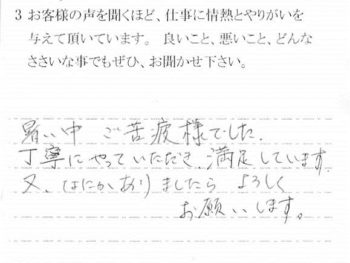 3 お客様の声を聞くほど、仕事に情熱とやりがいを
与えて頂いています。 良いこと、悪いこと、どんな
ささいな事でもぜひ、お聞かせ下さい。
暑い中 ご苦疲様でした.
丁寧にやっていただき、満足しています.
又、なにかありましたら よろしく
お願いします。